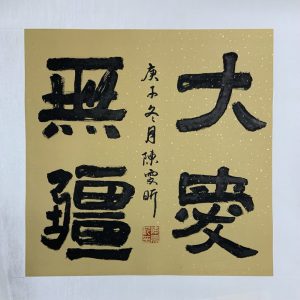 大愛
無疆
庚子冬月陳雯昕